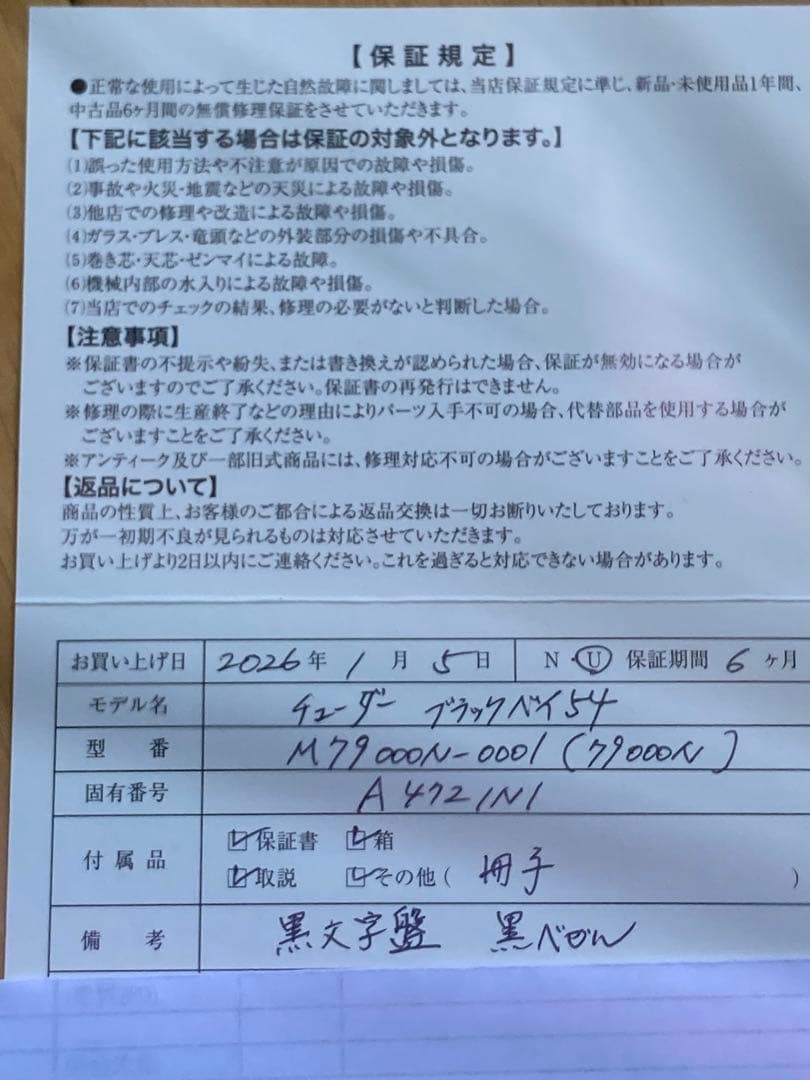 【保証規定】
●正常な使用によって生じた自然故障に関しましては、当店保証規定に準じ、新品・未使用品1年間、
中古品6ヶ月間の無償修理保証をさせていただきます。
【下記に該当する場合は保証の対象外となります。】
(1)誤った使用方法や不注意が原因での故障や損傷。
(2)事故や火災・地震などの天災による故障や損傷。
(3)他店での修理や改造による故障や損傷。
(4)ガラス・ブレス・竜頭などの外装部分の損傷や不具合。
(5)巻き芯・天芯・ゼンマイによる故障。
(6)機械内部の水入りによる故障や損傷。
(7)当店でのチェックの結果、修理の必要がないと判断した場合。
【注意事項】
※保証書の不提示や紛失、または書き換えが認められた場合、保証が無効になる場合が
ございますのでご了承ください。保証書の再発行はできません。
※修理の際に生産終了などの理由によりパーツ入手不可の場合、代替部品を使用する場合が
ございますことをご了承ください。
※アンティーク及び一部旧式商品には、修理対応不可の場合がございますことをご了承ください。
【返品について】
商品の性質上、お客様のご都合による返品交換は一切お断りいたしております。
万が一初期不良が見られるものは対応させていただきます。
お買い上げより2日以内にご連絡ください。これを過ぎると対応できない場合があります。
お買い上げ日 2026年 1月 5日 N・U 保証期間 6ヶ月
モデル名 チューダー ブラックベイ54
型番 M79000N-0001 (79000N)
固有番号 A4721N1
付属品 保証書 箱
取説 その他( 冊子 )
備考 黒文字盤 黒べぜん